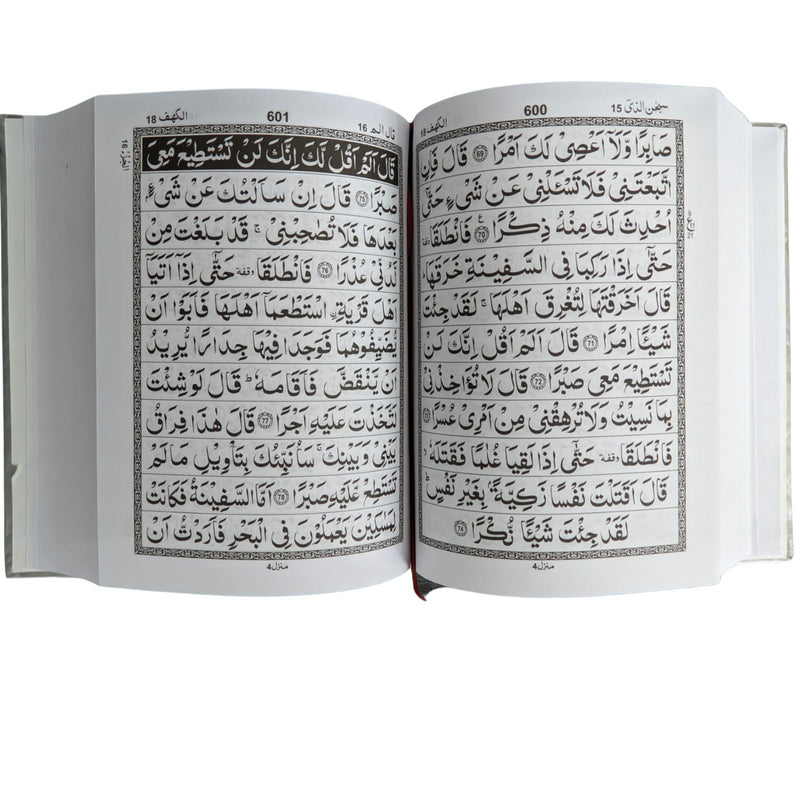 سبحن الذی 15
600
الکهف 18
صَابِرًا وَّلَآ اَعْصِیْ لَكَ اَمْرًا ﴿69﴾ قَالَ فَاِنِ
اتَّبَعْتَنِیْ فَلَا تَسْئَلْنِیْ عَنْ شَیْءٍ حَتّٰۤی
اُحْدِثَ لَكَ مِنْهُ ذِكْرًا ﴿70﴾ فَانْطَلَقَا وقفة
حَتّٰۤی اِذَا رَكِبَا فِی السَّفِیْنَةِ خَرَقَهَا ؕ
قَالَ اَخَرَقْتَهَا لِتُغْرِقَ اَهْلَهَا ۚ لَقَدْ جِئْتَ
شَیْئًا اِمْرًا ﴿71﴾ قَالَ اَلَمْ اَقُلْ اِنَّكَ لَنْ
تَسْتَطِیْعَ مَعِیَ صَبْرًا ﴿72﴾ قَالَ لَا تُؤَاخِذْنِیْ
بِمَا نَسِیْتُ وَلَا تُرْهِقْنِیْ مِنْ اَمْرِیْ عُسْرًا ﴿73﴾
فَانْطَلَقَا وقفة حَتّٰۤی اِذَا لَقِیَا غُلٰمًا فَقَتَلَهٗ ۙ
قَالَ اَقَتَلْتَ نَفْسًا زَكِیَّةًۢ بِغَیْرِ نَفْسٍ ؕ
لَقَدْ جِئْتَ شَیْئًا نُّكْرًا ﴿74﴾
منزل 4
قال الم 16
601
الکهف 18
قَالَ اَلَمْ اَقُلْ لَّكَ اِنَّكَ لَنْ تَسْتَطِیْعَ مَعِیَ
صَبْرًا ﴿75﴾ قَالَ اِنْ سَاَلْتُكَ عَنْ شَیْءٍۭ
بَعْدَهَا فَلَا تُصٰحِبْنِیْ ۚ قَدْ بَلَغْتَ مِنْ
لَّدُنِّیْ عُذْرًا ﴿76﴾ فَانْطَلَقَا وقفة حَتّٰۤی اِذَاۤ اَتَیَاۤ
اَهْلَ قَرْیَةِ ِۨاسْتَطْعَمَاۤ اَهْلَهَا فَاَبَوْا اَنْ
یُّضَیِّفُوْهُمَا فَوَجَدَا فِیْهَا جِدَارًا یُّرِیْدُ
اَنْ یَّنْقَضَّ فَاَقَامَهٗ ؕ قَالَ لَوْ شِئْتَ
لَتَّخَذْتَ عَلَیْهِ اَجْرًا ﴿77﴾ قَالَ هٰذَا فِرَاقُ
بَیْنِیْ وَبَیْنِكَ ۚ سَاُنَبِّئُكَ بِتَاْوِیْلِ مَا لَمْ
تَسْتَطِعْ عَّلَیْهِ صَبْرًا ﴿78﴾ اَمَّا السَّفِیْنَةُ فَكَانَتْ
لِمَسٰكِیْنَ یَعْمَلُوْنَ فِی الْبَحْرِ فَاَرَدْتُّ اَنْ
منزل 4